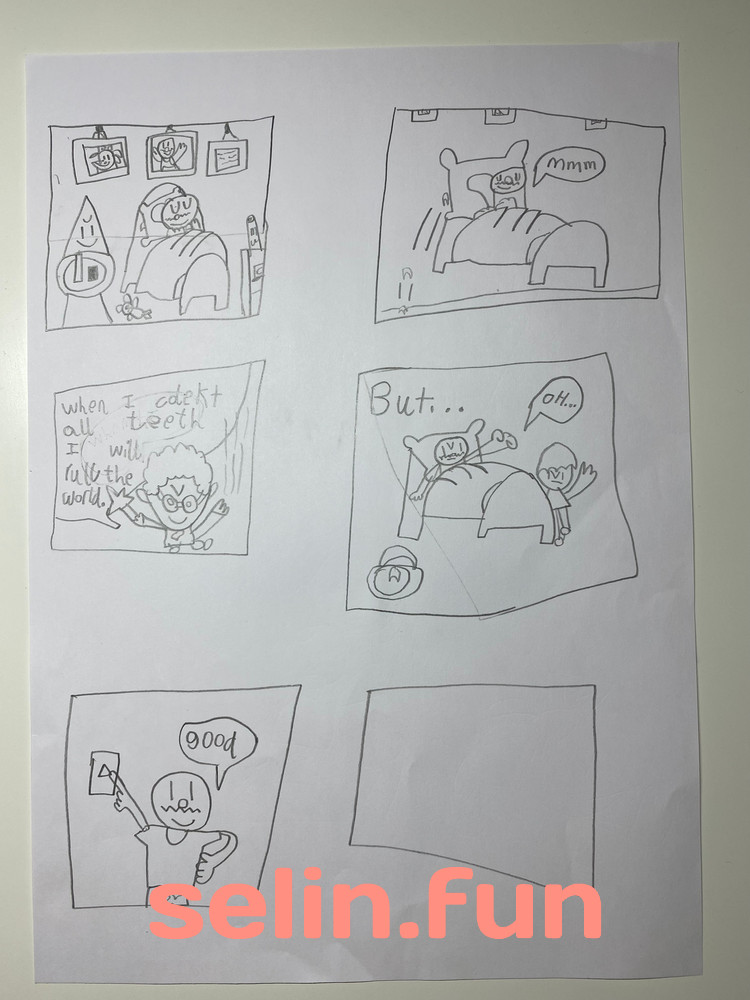 mmm
when I colekt
all teeth
I will
rull the
world.
But...
OH...
good
selin.fun